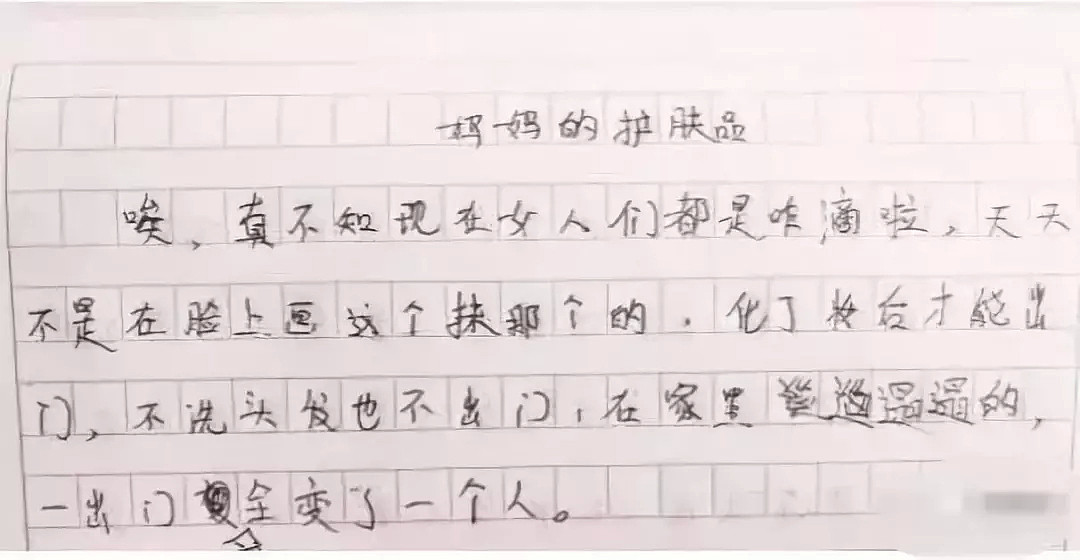 妈妈的护肤品
唉，真不知现在女人们都是咋滴啦，天天
不是在脸上画这个抹那个的，化了妆后才能出
门，不洗头发也不出门，在家里邋遢遢的，
一出门全变了一个人。